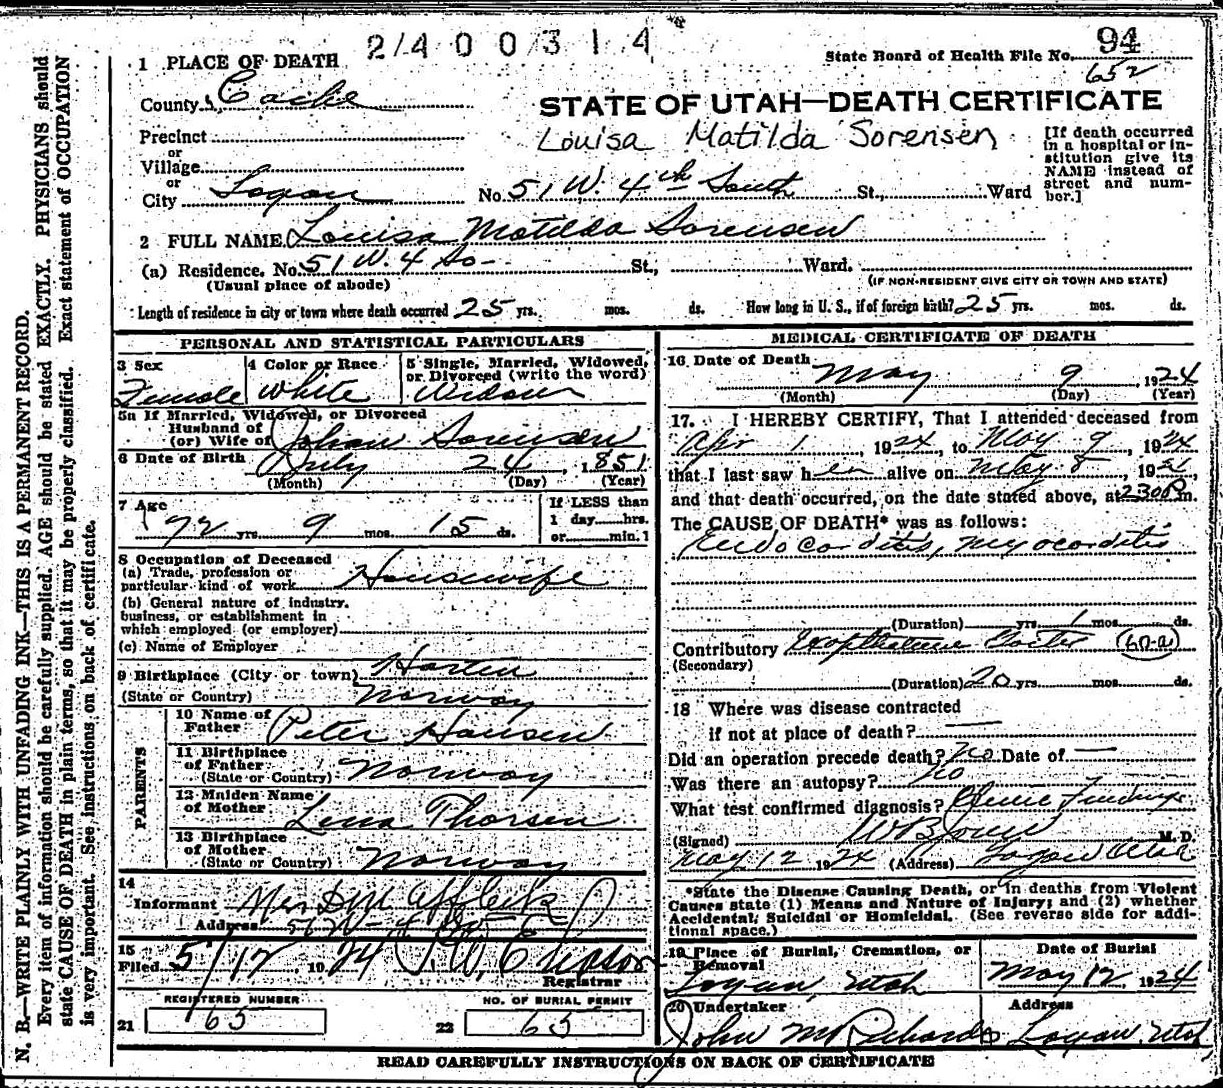 2140031 4
State Board of Health File No. 94
652
1 PLACE OF DEATH
County Cache
STATE OF UTAH—DEATH CERTIFICATE
Precinct
or
Village
or
City Logan
Louisa Matilda Sorensen
No. 51 W. 4th South St., Ward
[If death occurred
in a hospital or in-
stitution give its
NAME instead of
street and num-
ber.]
2 FULL NAME Louisa Matilda Sorensen
(a) Residence. No. 51 W. 4 So- St., Ward.
(Usual place of abode)
(IF NON-RESIDENT GIVE CITY OR TOWN AND STATE)
Length of residence in city or town where death occurred 25 yrs. mos. ds. How long in U. S., if of foreign birth? 25 yrs. mos. ds.
PERSONAL AND STATISTICAL PARTICULARS
3 Sex
Female
4 Color or Race
White
5 Single, Married, Widowed,
or Divorced (write the word)
Widow
5a If Married, Widowed, or Divorced
Husband of
(or) Wife of Johan Sorensen
6 Date of Birth July 24, 1851
(Month) (Day) (Year)
7 Age
72 yrs. 9 mos. 15 ds.
If LESS than
1 day hrs.
or min.1
8 Occupation of Deceased
(a) Trade, profession or
particular kind of work Housewife
(b) General nature of industry,
business, or establishment in
which employed (or employer)
(c) Name of Employer
9 Birthplace (City or town)
(State or Country) Norway
PARENTS
10 Name of
Father Peter Hansen
11 Birthplace
of Father
(State or Country) Norway
12 Maiden Name
of Mother Lena Thorsen
13 Birthplace
of Mother
(State or Country) Norway
14
Informant Mrs Affleck
Address
15
Filed 5/12, 1924
Registrar
REGISTERED NUMBER
21 65
NO. OF BURIAL PERMIT
22 65
MEDICAL CERTIFICATE OF DEATH
16 Date of Death
May 9, 1924
(Month) (Day) (Year)
17. I HEREBY CERTIFY, That I attended deceased from
Apr 1, 1924, to May 9, 1924
that I last saw her alive on May 8, 1924,
and that death occurred, on the date stated above, at 230 P m.
The CAUSE OF DEATH* was as follows:
Endocarditis, Myocarditis
(Duration) yrs. 1 mos. ds.
Contributory Goiter (60-a)
(Secondary)
(Duration) 20 yrs. mos. ds.
18 Where was disease contracted
if not at place of death?
Did an operation precede death? no Date of —
Was there an autopsy? no
What test confirmed diagnosis? Findings
(Signed) M. D.
May 12 1924 (Address) Logan Utah
*State the Disease Causing Death, or in deaths from Violent
Causes state (1) Means and Nature of Injury; and (2) whether
Accidental, Suicidal or Homicidal. (See reverse side for addi-
tional space.)
19 Place of Burial, Cremation, or
Removal
Logan, Utah
Date of Burial
May 12, 1924
20 Undertaker
John M Richards
Address
Logan, Utah
READ CAREFULLY INSTRUCTIONS ON BACK OF CERTIFICATE
N. B.—WRITE PLAINLY WITH UNFADING INK—THIS IS A PERMANENT RECORD.
Every item of information should be carefully supplied. AGE should be stated EXACTLY. PHYSICIANS should
state CAUSE OF DEATH in plain terms, so that it may be properly classified. Exact statement of OCCUPATION
is very important. See instructions on back of certificate.